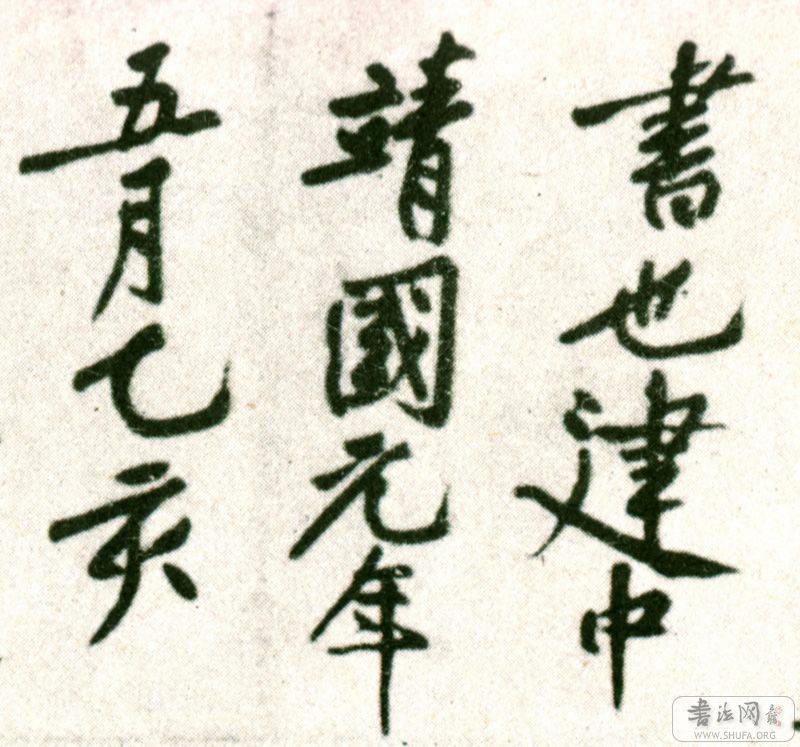 書也建中
靖國元年
五月乙亥
書法网
WWW.SHUFA.ORG